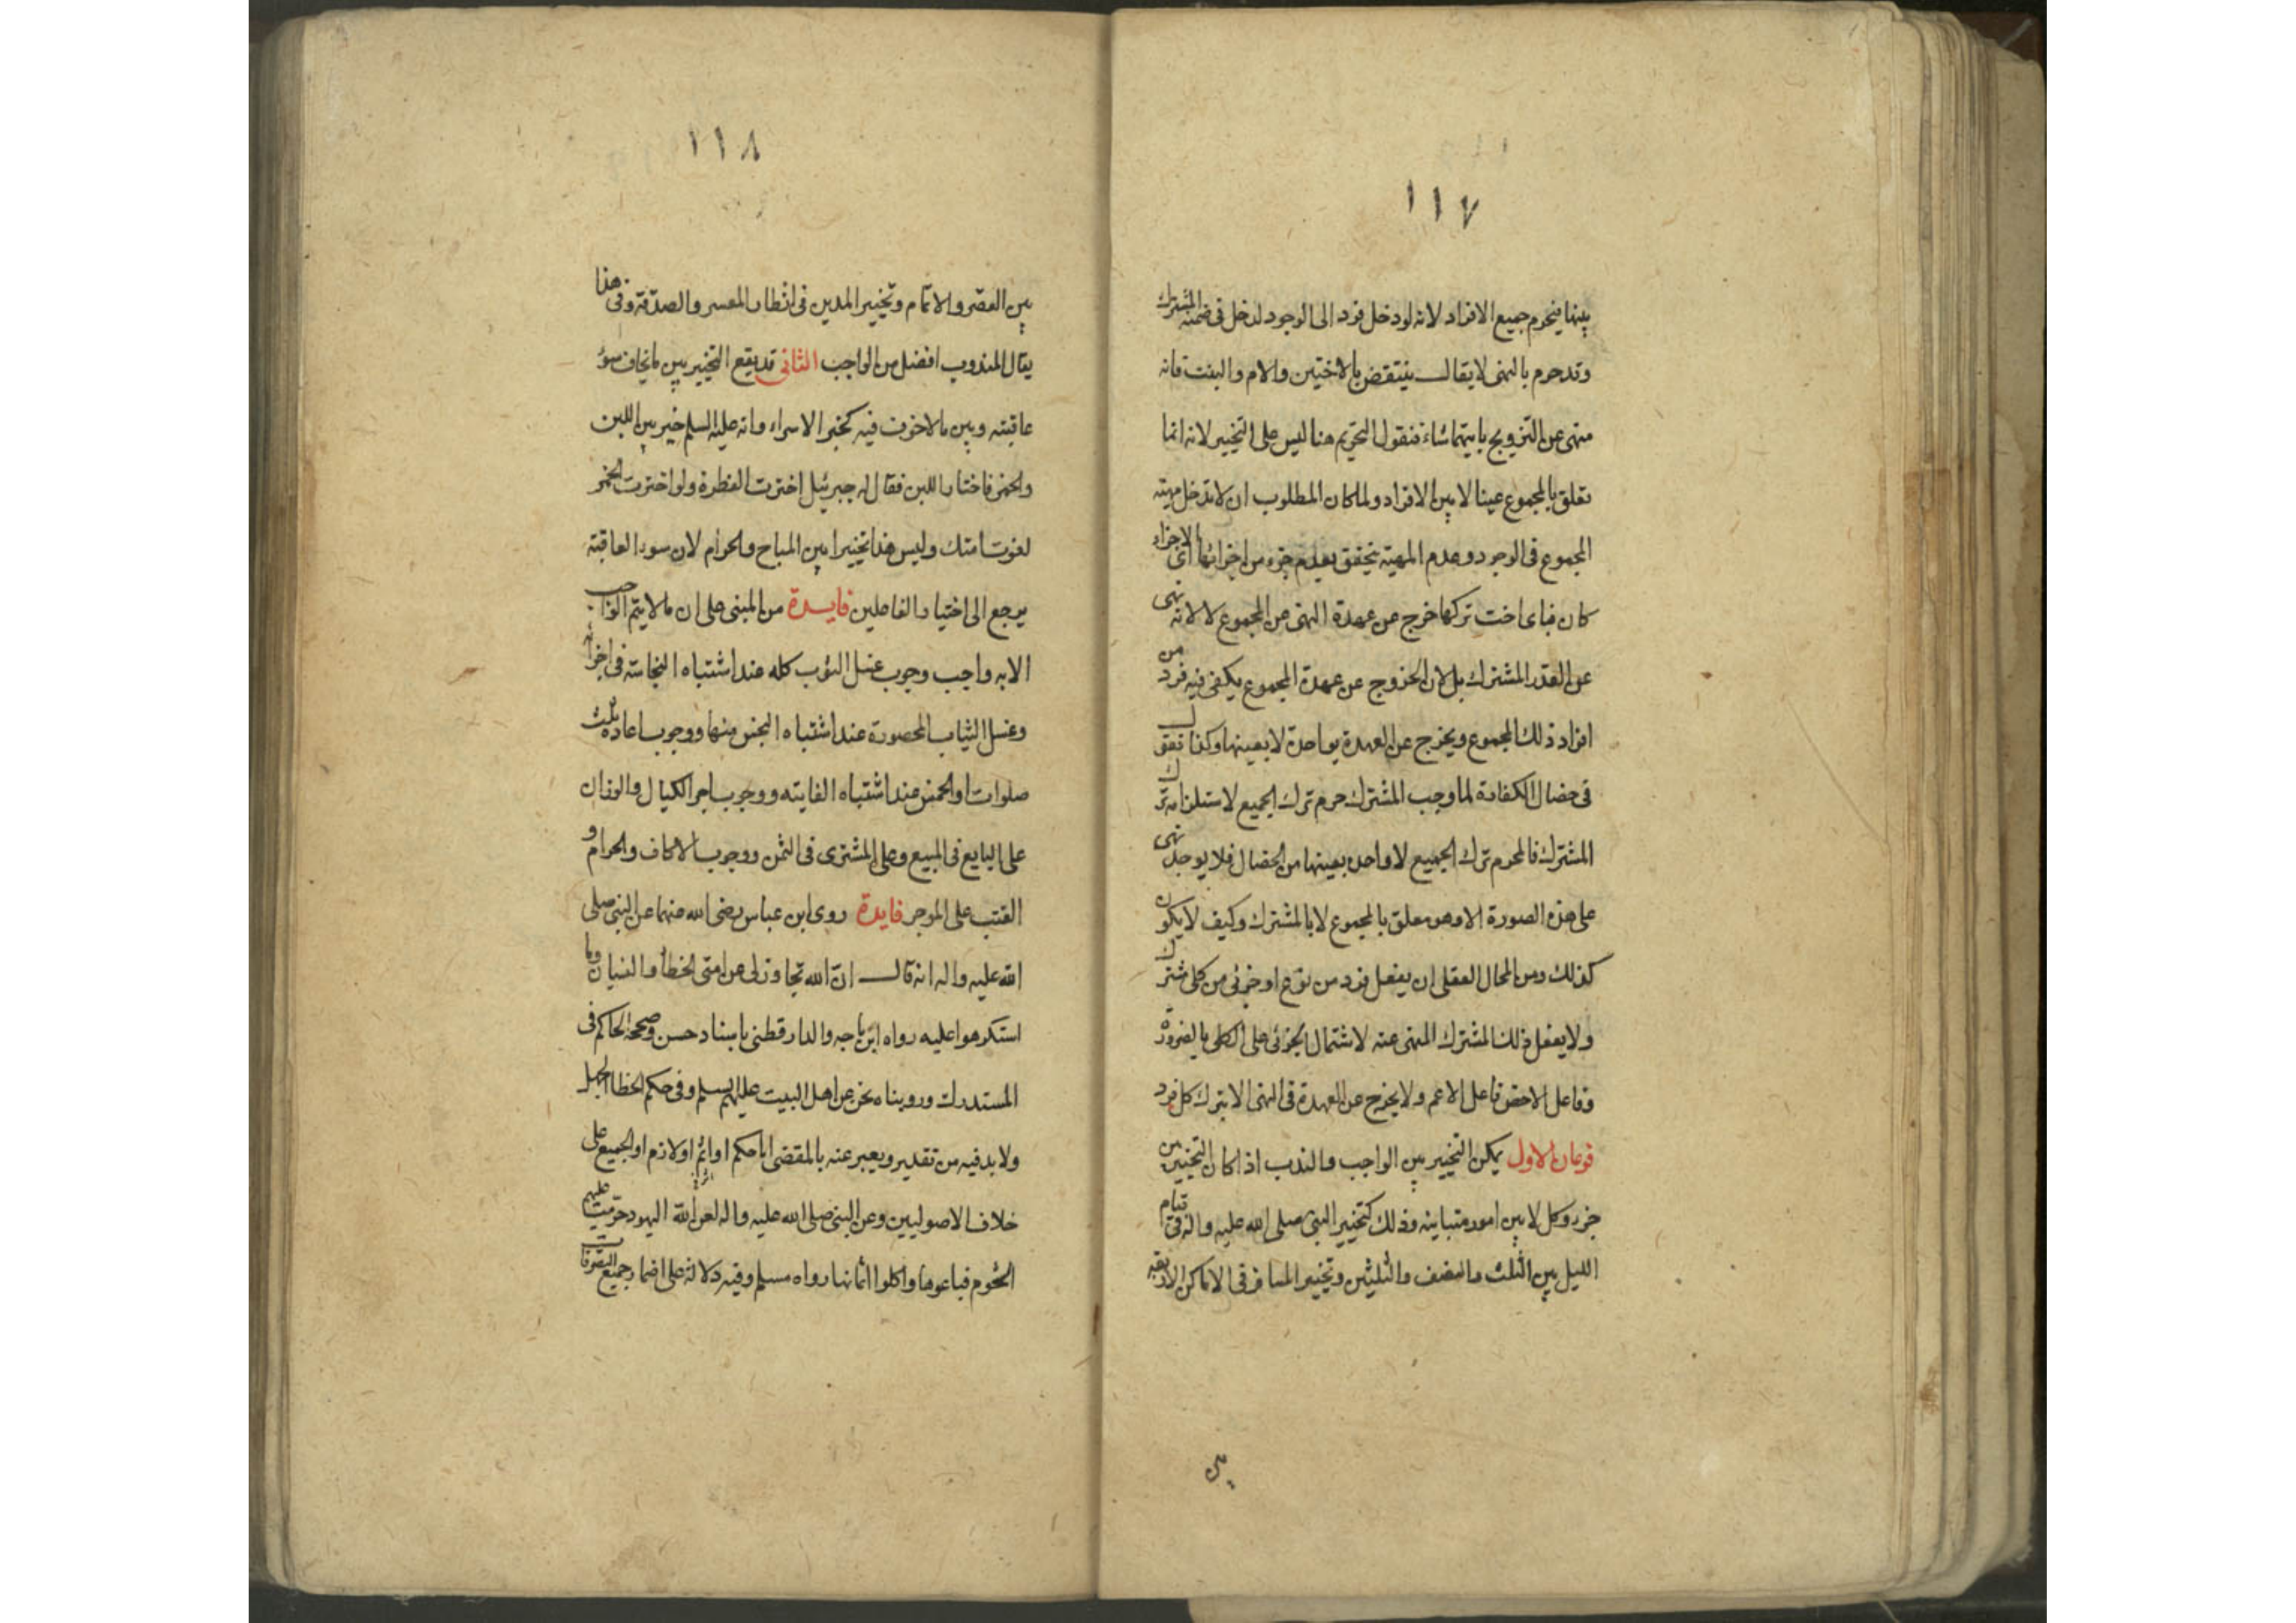 ١١٧
بينها فيحرم جميع الافراد لانه لو دخل فرد الى الوجود لدخل فى ضمنه المشترك
وقد حرم بالنهى لا يقال ينتقض بالاختين والام والبنت فانه
منهى عن التزويج بايتهما شاء فنقول التحريم هنا ليس على التخيير لانه انما
تعلق بالمجموع عينا لا بين الافراد ولما كان المطلوب ان لا تدخل مهية
المجموع فى الوجود وعدم المهية يتحقق بعدم جزء من اجزائها اى الاجزاء
كان فباى اخت تركها خرج عن عهدة النهى عن المجموع لا لانه نهى
عن القدر المشترك بل لان الخروج عن عهدة المجموع يكفى فيه فرد من
افراد ذلك المجموع ويخرج عن العهدة بواحدة لا بعينها وكذا نقول
فى خصال الكفارة لما وجب المشترك حرم ترك الجميع لاستلزامه ترك
المشترك فالمحرم ترك الجميع لا واحد بعينها من الخصال فلا يوجد نهى
على هذه الصورة الا وهو معلق بالمجموع لا بالمشترك وكيف لا يكون
كذلك ومن المحال العقلى ان يفعل فرد من نوع او جزئى من كلى مشترك
ولا يفعل ذلك المشترك المنهى عنه لاشتمال الجزئى على الكلى بالضرورة
وفاعل الاخص فاعل الاعم ولا يخرج عن العهدة فى النهى الا بترك كل فرد
فرعان الاول يمكن التخيير بين الواجب والندب اذا كان التخيير من
جزء وكل لا بين امور متباينه وذلك كتخيير النبى صلى الله عليه واله فى قيام
الليل بين الثلث والنصف والثلثين وتخيير المسافر فى الاماكن الاربعة
بين
١١٨
بين القصر والاتمام وتخيير المدين فى انظار المعسر والصدقة وفى هذا
يقال المندوب افضل من الواجب الثانى قد يقع التخيير بين ما يخاف سوء
عاقبته وبين ما لا خوف فيه كخبر الاسراء وانه عليه السلم خير بين اللبن
والخمر فاختار اللبن فقال له جبرئيل اخترت الفطرة ولو اخترت الخمر
لغوت امتك وليس هذا تخييرا بين المباح والحرام لان سوء العاقبة
يرجع الى اختيار الفاعلين فايدة من المبنى على ان ما لا يتم الواجب
الا به واجب وجوب غسل الثوب كله عند اشتباه النجاسة فى اجزائه
وغسل الثياب المحصورة عند اشتباه النجس منها ووجوب اعادة ثلث
صلوات او الخمس عند اشتباه الفايته ووجوب اجر الكيال والوزان
على البايع فى المبيع وعلى المشترى فى الثمن ووجوب الاكاف والحزام و
القتب على الموجر فايدة روى ابن عباس رضى الله عنهما عن النبى صلى
الله عليه واله انه قال انّ الله تجاوز لى عن امتى الخطأ والنسيان وما
استكرهوا عليه رواه ابن ماجه والدارقطنى باسناد حسن وصححه الحاكم فى
المستدرك ورويناه نحن عن اهل البيت عليهم السلم وفى حكم الخطا الجهل
ولا بد فيه من تقدير ويعبر عنه بالمقتضى اما حكم او اثم او لازم او الجميع على
خلاف الاصوليين وعن النبى صلى الله عليه واله لعن الله اليهود حرّمت عليهم
الشحوم فباعوها واكلوا اثمانها رواه مسلم وفيه دلالة على اضمار جميع التصرفات